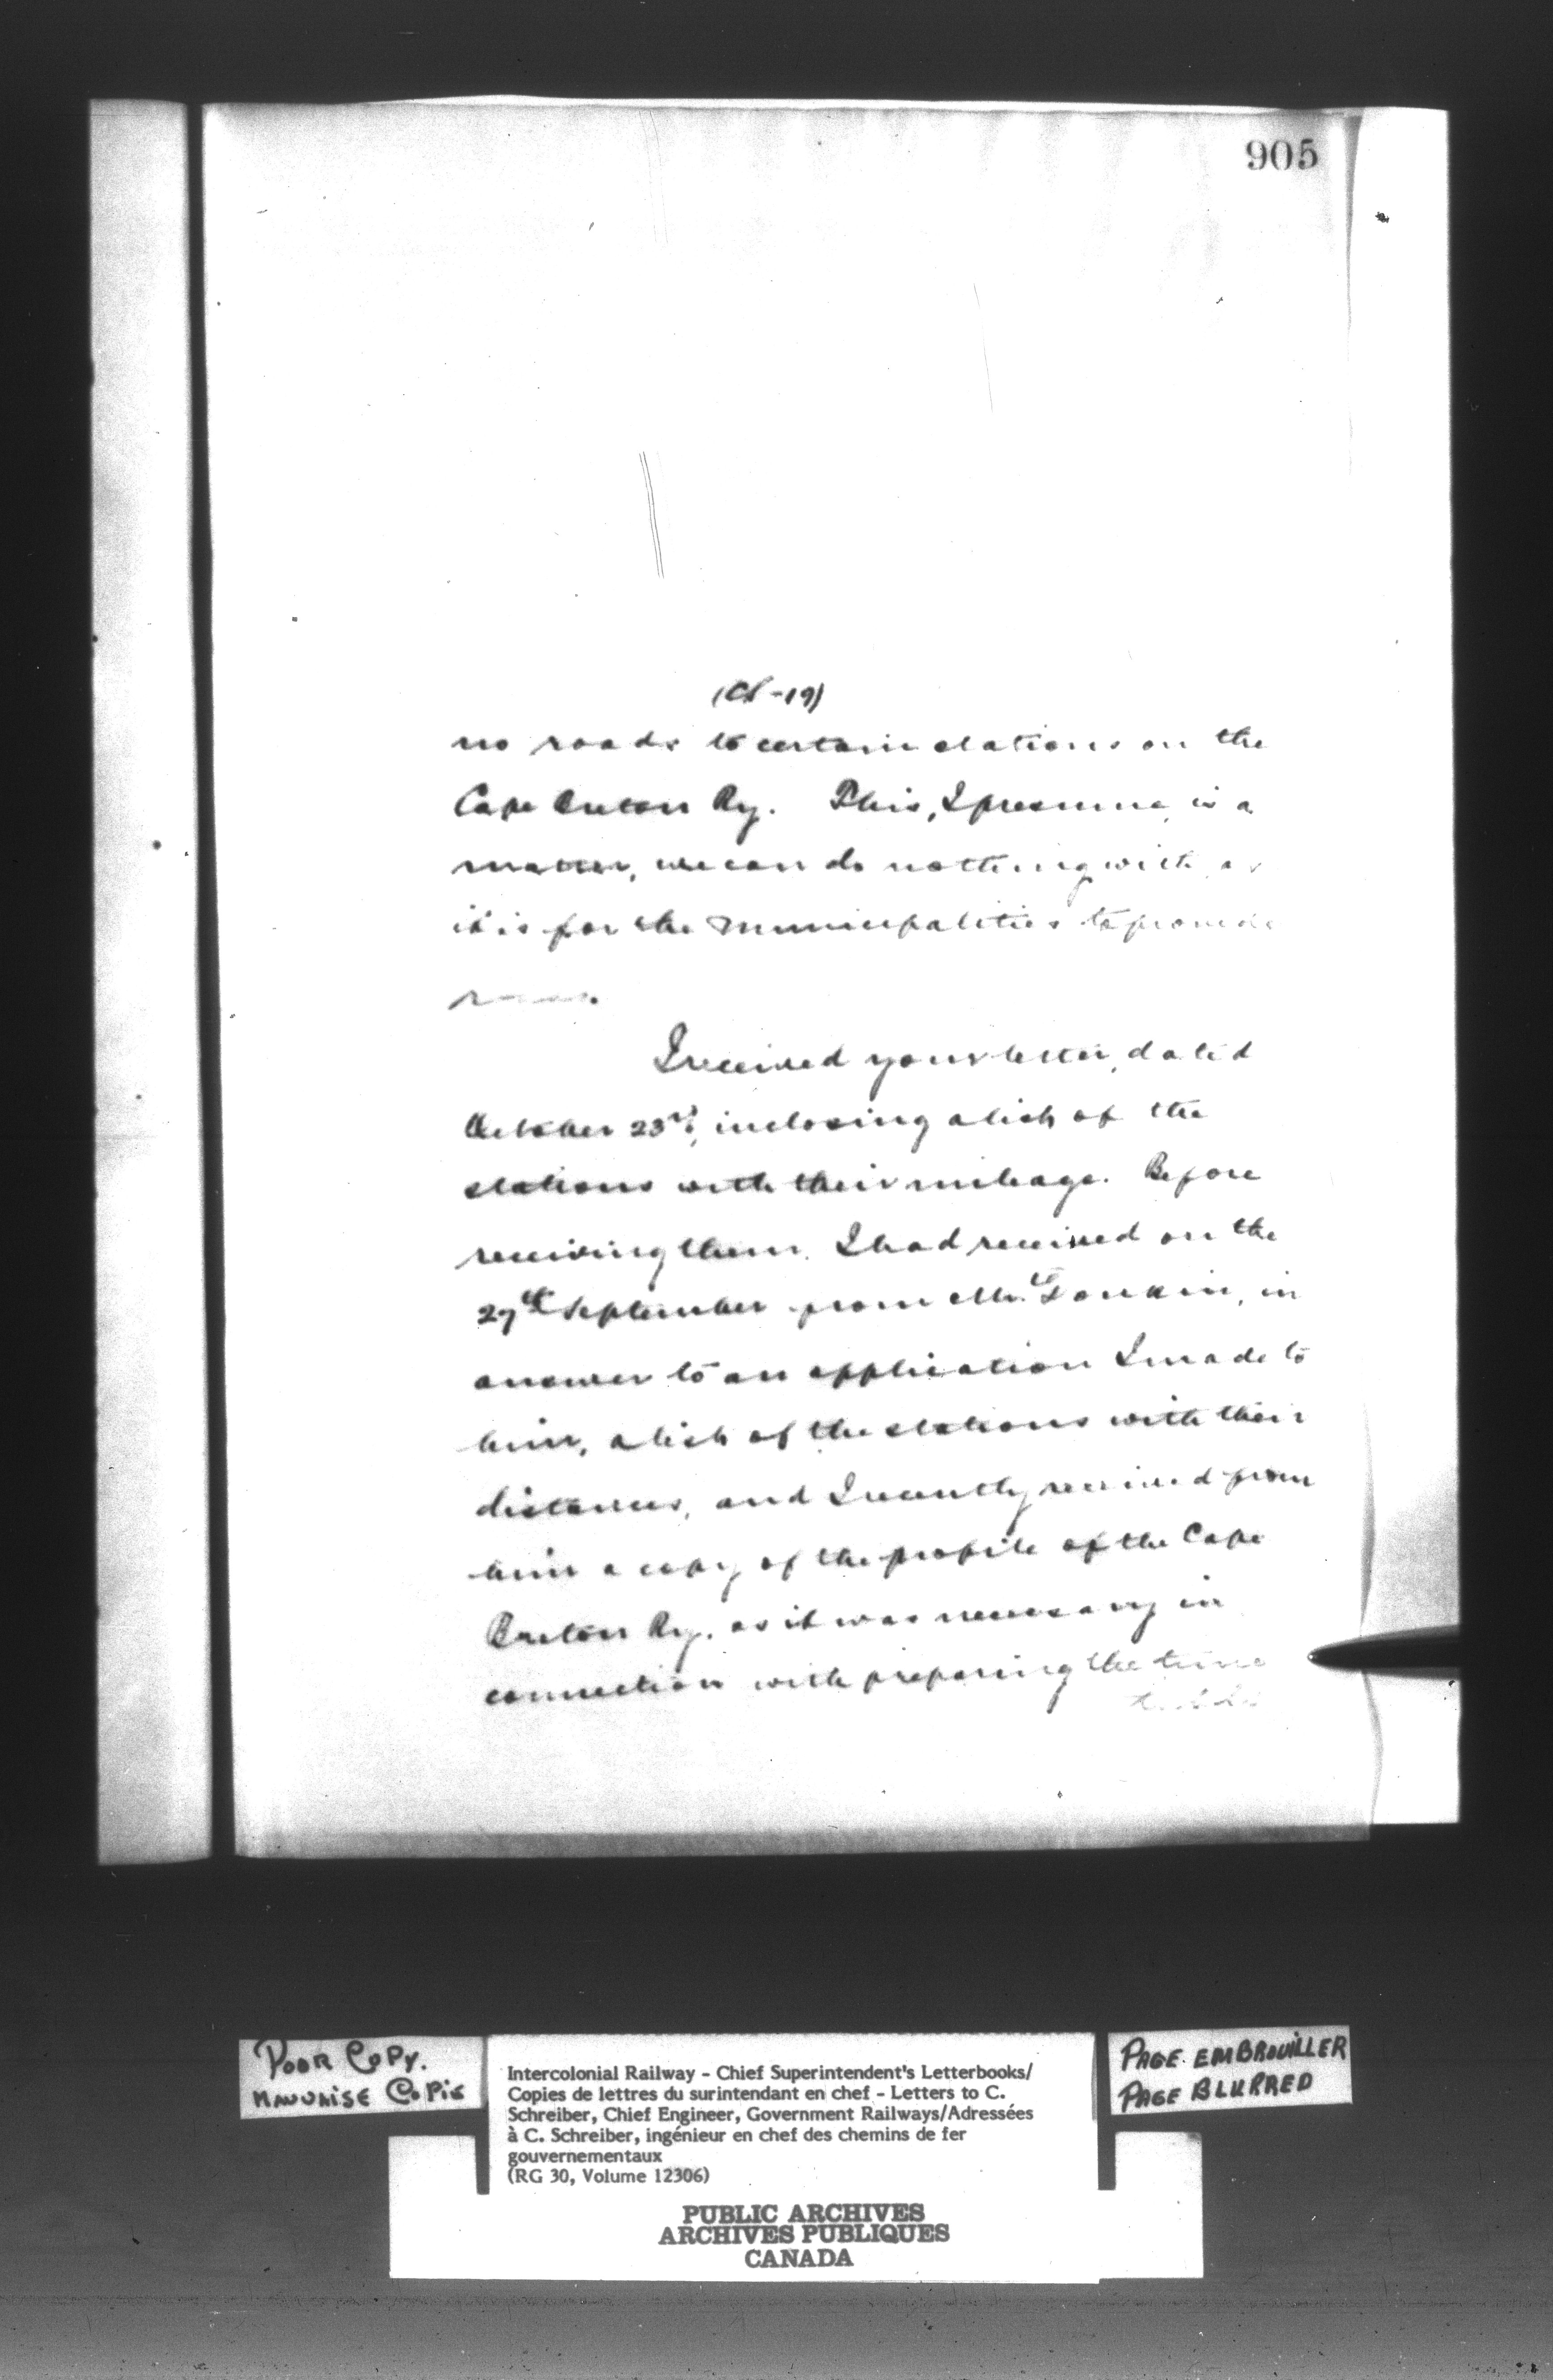 905
(CS-19)
no roads to certain stations on the
Cape Breton Ry. This, I presume, is a
matter, we can do nothing with, as
it is for the Municipalities to provide
roads.
I received your letter, dated
October 23rd, inclosing a list of the
stations with their mileage. Before
receiving them, I had received on the
27th September from Mr. Donkin, in
answer to an application I made to
him, a list of the stations with their
distances, and I recently received from
him a copy of the profile of the Cape
Breton Ry. as it was necessary in
connection with preparing the time
table
POOR COPY.
MAUVAISE COPIE
Intercolonial Railway - Chief Superintendent's Letterbooks/
Copies de lettres du surintendant en chef - Letters to C.
Schreiber, Chief Engineer, Government Railways/Adressées
à C. Schreiber, ingénieur en chef des chemins de fer
gouvernementaux
(RG 30, Volume 12306)
PAGE EMBROUILLER
PAGE BLURRED
PUBLIC ARCHIVES
ARCHIVES PUBLIQUES
CANADA